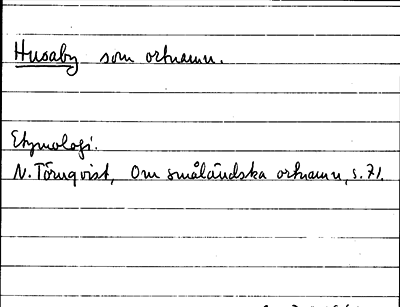 Husaby som ortnamn.
Etymologi.
N. Törnqvist, Om småländska ortnamn, s. 71.